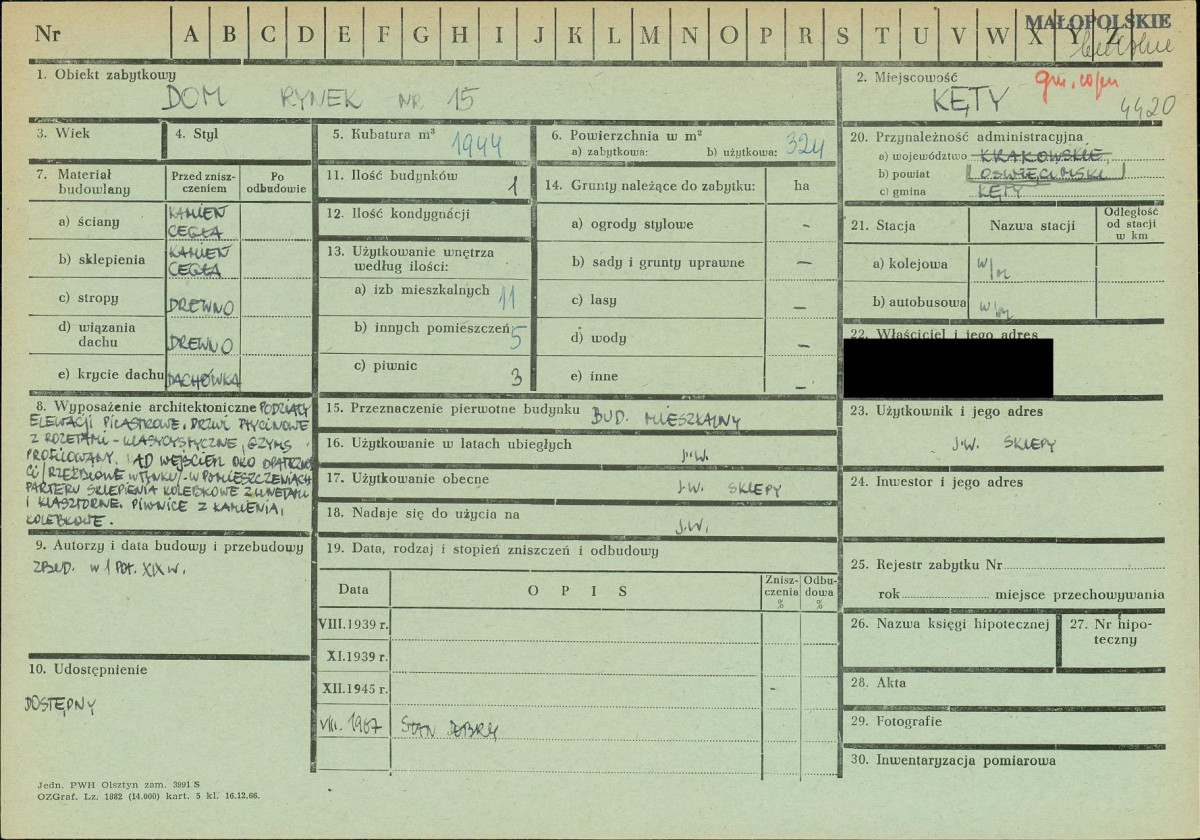 Nr A B C D E F G H I J K L M N O P R S T U V W X Y Z
MAŁOPOLSKIE
1. Obiekt zabytkowy
DOM RYNEK NR 15
2. Miejscowość
KĘTY
4420
3. Wiek
4. Styl
5. Kubatura m³ 1944
6. Powierzchnia w m²
a) zabytkowa: b) użytkowa: 324
20. Przynależność administracyjna
a) województwo KRAKOWSKIE
b) powiat OŚWIĘCIMSKI
c) gmina KĘTY
7. Materiał budowlany
Przed zniszczeniem
Po odbudowie
a) ściany KAMIEŃ
CEGŁA
b) sklepienia KAMIEŃ
CEGŁA
c) stropy DREWNO
d) wiązania dachu DREWNO
e) krycie dachu DACHÓWKA
11. Ilość budynków 1
12. Ilość kondygnacji
13. Użytkowanie wnętrza
według ilości:
a) izb mieszkalnych 11
b) innych pomieszczeń 5
c) piwnic 3
14. Grunty należące do zabytku: ha
a) ogrody stylowe –
b) sady i grunty uprawne –
c) lasy –
d) wody –
e) inne –
21. Stacja
Nazwa stacji
Odległość od stacji w km
a) kolejowa w/m
b) autobusowa w/m
22. Właściciel i jego adres
8. Wyposażenie architektoniczne PODZIAŁY
ELEWACJI PILASTROWE. DRZWI PŁYCINOWE
Z ROZETAMI – KLASYCYSTYCZNE, GZYMS
PROFILOWANY. NAD WEJŚCIEM OKO OPATRZNOŚ
CI /RZEŹBIONE W TYNKU/. W POMIESZCZENIACH
PARTERU SKLEPIENIA KOLEBKOWE Z LUNETAMI
I KLASZTORNE. PIWNICE Z KAMIENIA,
KOLEBKOWE.
15. Przeznaczenie pierwotne budynku BUD. MIESZKALNY
16. Użytkowanie w latach ubiegłych J.W.
17. Użytkowanie obecne J.W. SKLEPY
18. Nadaje się do użycia na J.W.
23. Użytkownik i jego adres
J.W. SKLEPY
24. Inwestor i jego adres
9. Autorzy i data budowy i przebudowy
ZBUD. W 1 POŁ. XIX W.
10. Udostępnienie
DOSTĘPNY
19. Data, rodzaj i stopień zniszczeń i odbudowy
Data
O P I S
Zniszczenia %
Odbudowa %
VIII. 1939 r.
XI. 1939 r.
XII. 1945 r. -
VIII. 1967 STAN DOBRY
25. Rejestr zabytku Nr
rok miejsce przechowywania
26. Nazwa księgi hipotecznej
27. Nr hipoteczny
28. Akta
29. Fotografie
30. Inwentaryzacja pomiarowa
Jedn. PWH Olsztyn zam. 3991 S
OZGraf. Lz. 1882 (14.000) kart. 5 kl. 16.12.66.